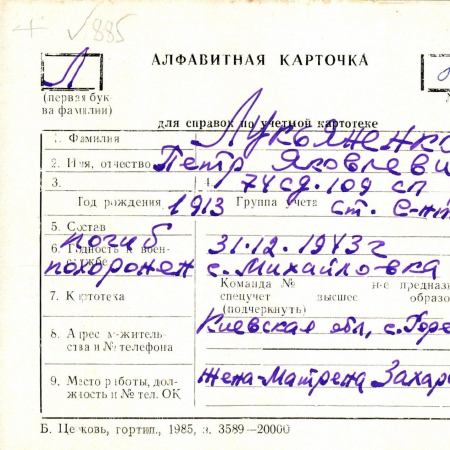 + √885
АЛФАВИТНАЯ КАРТОЧКА
Л
(первая бук
ва фамилии)
для справок по учетной картотеке
1. Фамилия Лукьяненко
2. Имя, отчество Петр Яковлеви
3. 4. 74 сд. 109 сп
Год рождения 1913 Группа учета ст. с-нт
5. Состав
погиб 31.12.1943г
6. Годность к воен-
ской службе
похоронен с. Михайловка
Команда №
7. Картотека спецучет высшее образо
(подчеркнуть)
8. Адрес жительства и № телефона Киевская обл, с. Горе
9. Место работы, долж-
ность и № тел. ОК Жена-Матрена Захар
Б. Церковь, гортип., 1985, з. 3589—20000